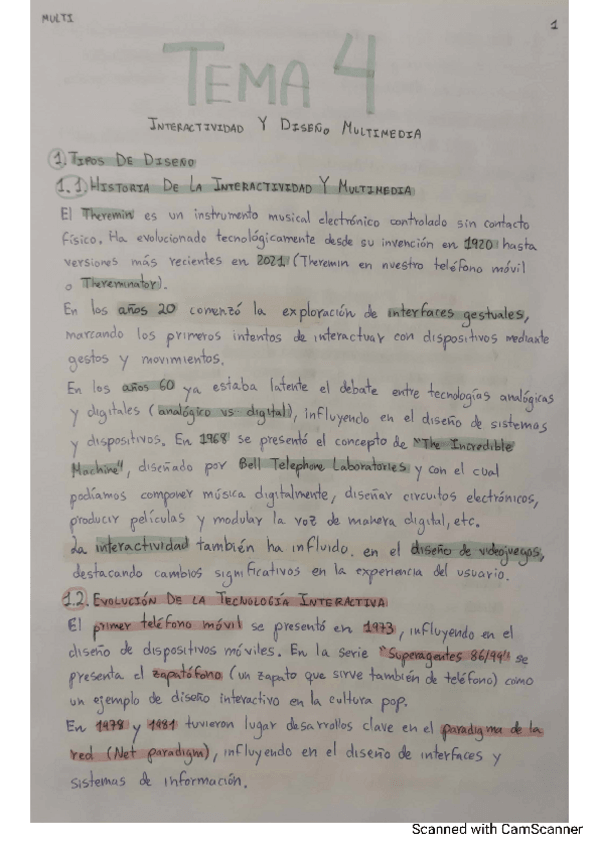 MULTI
1
TEMA 4
INTERACTIVIDAD Y DISEÑO MULTIMEDIA
1. TIPOS DE DISEÑO
1.1) HISTORIA DE LA INTERACTIVIDAD Y MULTIMEDIA
El Theremin es un instrumento musical electrónico controlado sin contacto
físico. Ha evolucionado tecnológicamente desde su invención en 1920 hasta
versiones más recientes en 2021 (Theremin en nuestro teléfono móvil
o Thereminator).
En los años 20 comenzó la exploración de interfaces gestuales,
marcando los primeros intentos de interactuar con dispositivos mediante
gestos y movimientos.
En los años 60 ya estaba latente el debate entre tecnologías analógicas
y digitales (analógico vs digital), influyendo en el diseño de sistemas
y dispositivos. En 1968 se presentó el concepto de "The Incredible
Machine", diseñado por Bell Telephone Laboratories y con el cual
podíamos componer música digitalmente, diseñar circuitos electrónicos,
producir películas y modular la voz de manera digital, etc.
La interactividad también ha influido. en el diseño de videojuegos,
destacando cambios significativos en la experiencia del usuario.
1.2. EVOLUCIÓN DE LA TECNOLOGÍA INTERACTIVA
El primer teléfono móvil se presentó en 1973, influyendo en el
diseño de dispositivos móviles. En la serie "Superagentes 86/99" se
presenta el zapatófono (un zapato que sirve también de teléfono) como
un ejemplo de diseño interactivo en la cultura pop.
En 1978 y 1981 tuvieron lugar desarrollos clave en el paradigma de la
red (Net paradigm), influyendo en el diseño de interfaces y
sistemas de información.
Scanned with CamScanner